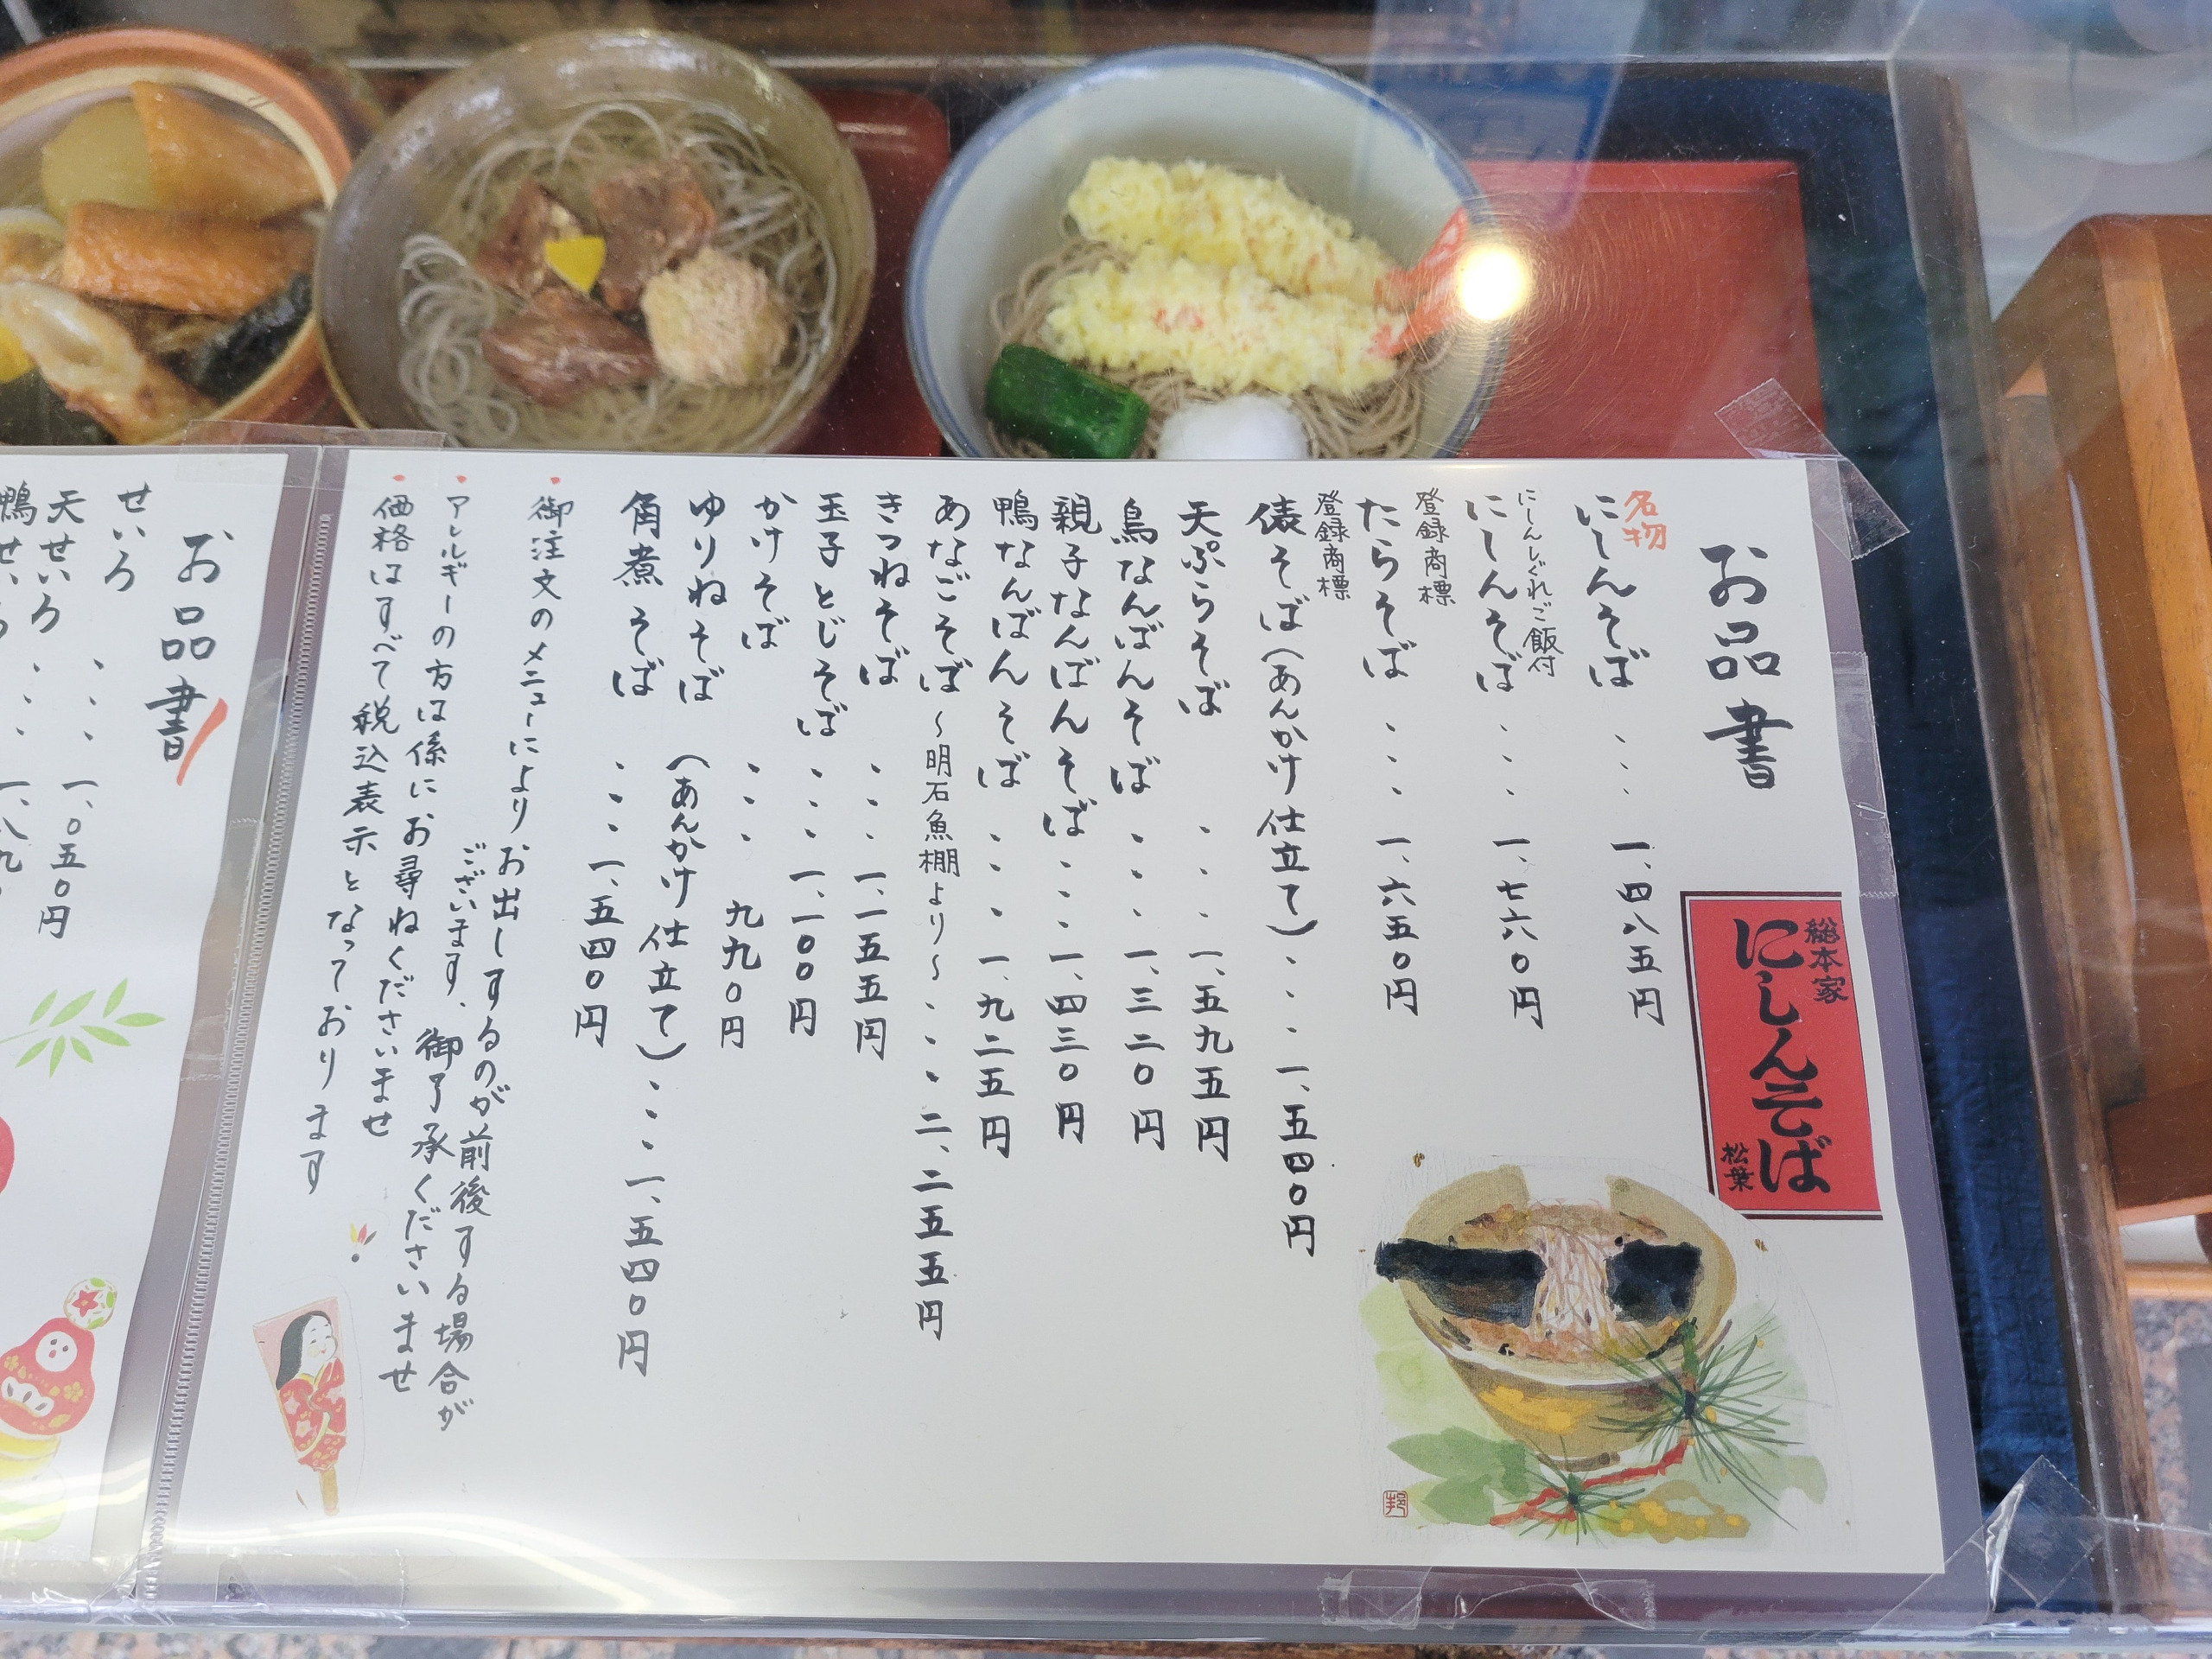 お品書
総本家
にしんそば
松葉
名物
にしんそば ・・・ 一、四八五円
にしんしぐれご飯付
にしんそば ・・・ 一、七六〇円
登録商標
たらそば ・・・ 一、六五〇円
登録商標
俵そば(あんかけ仕立て)・・・ 一、五四〇円
天ぷらそば ・・・ 一、五九五円
鳥なんばんそば ・・・ 一、三二〇円
親子なんばんそば ・・・ 一、四三〇円
鴨なんばんそば ・・・ 一、九二五円
あなごそば 〜明石魚棚より〜 ・・・ 二、二五五円
きつねそば ・・・ 一、一五五円
玉子とじそば ・・・ 一、一〇〇円
かけそば ・・・ 九九〇円
ゆりねそば (あんかけ仕立て)・・・ 一、五四〇円
角煮そば ・・・ 一、五四〇円
・御注文のメニューによりお出しするのが前後する場合が
ございます、御了承くださいませ
・アレルギーの方は係にお尋ねくださいませ
・価格はすべて税込表示となっております
お品書
せいろ ・・・
天せいろ ・・・ 一、
〇五〇円
鴨せいろ ・・・ 一、八九